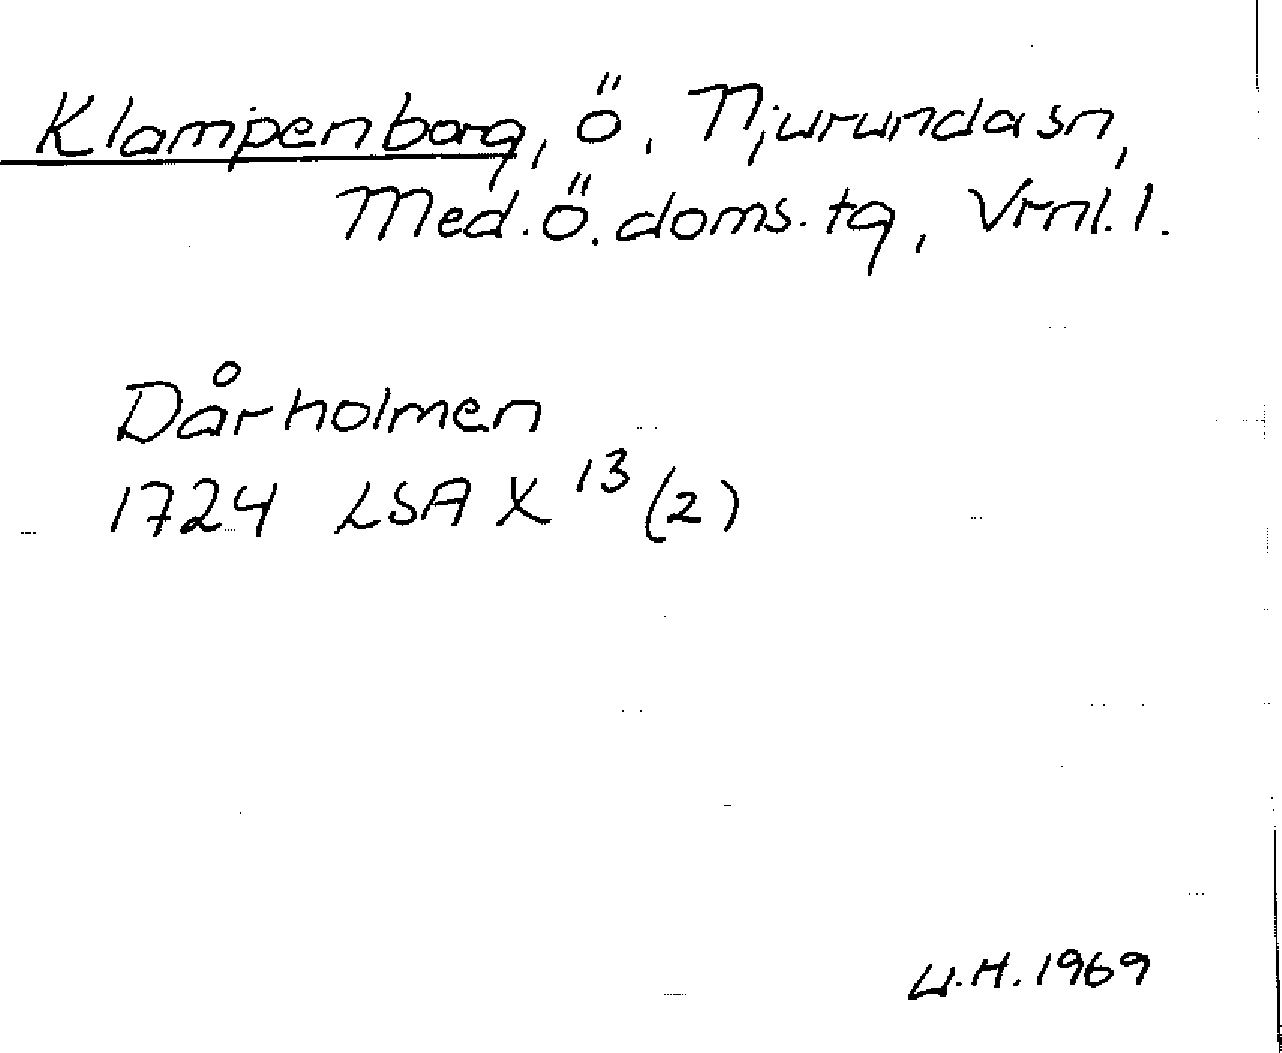 Klampenborg, ö. Njurunda sn,
Med. Ö. doms. tg, Vrnl. l.
Dårholmen
1724 LSA X 13 (2)
U.H. 1969